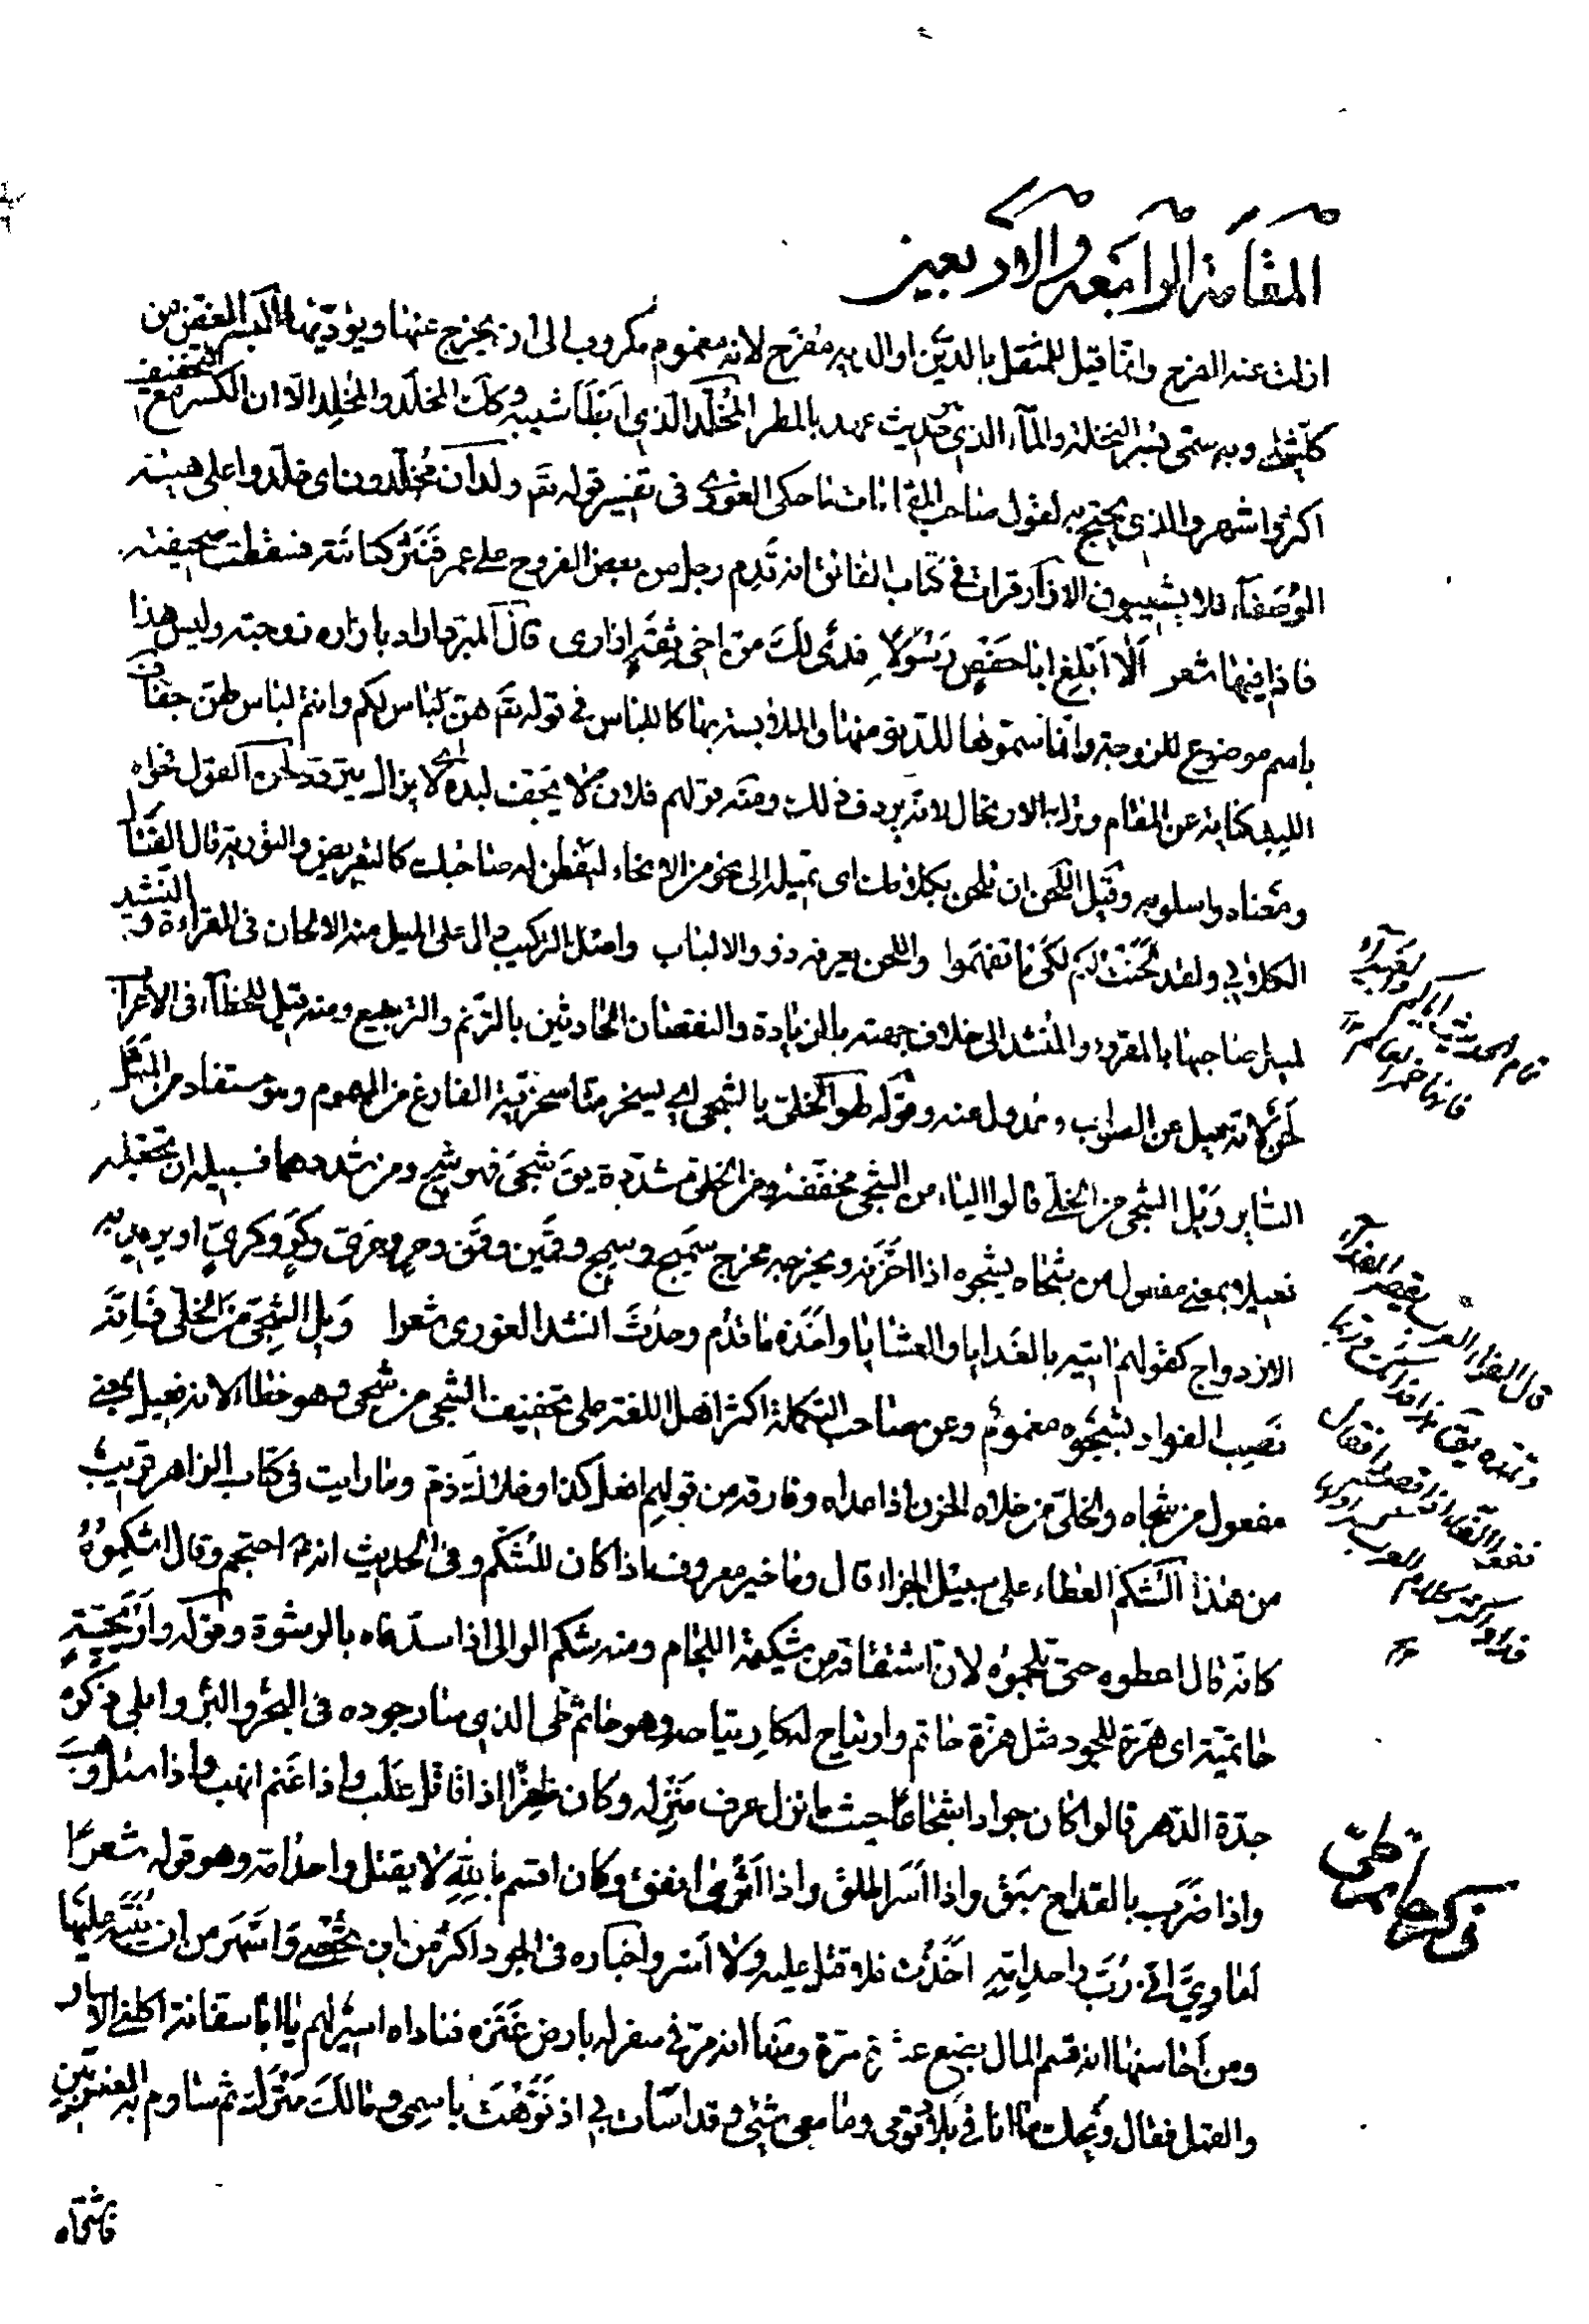 المقامة الرابعة والاربعين
ازلت عنه الفرح وانما قيل للمثقل بالدين اوالدية مفرح لانه مغموم مكروب الى ان يخرج عنها ويؤديها من
كلثهلى وبه سمى فسر النخلة والماء الذى حديث عهد بالمطر المخلد الذى ابطا شيبه وكذلك المخلد والمخلد الا ان الكسر مع التخفيف
اكثر واشهر والذى يحتج به لقول صاحب المقامات ما حكى الغورى فى تفسير قوله تع ولدان مخلدون اى خلدوا على هيئة
الوصفاء فلا يشيبون الازار قرات فى كتاب الفائق انه قدم رجل من بعض الفروج على عمر فنثر كنانته فسقطت صحيفته
فاذا فيها شعر الا ابلغ ابا حفص رسولا فدى لك من اخى ثقة ازارى قال المبرد اراد بازاره زوجته وليس هذا
باسم موضوع للزوجة وانما سموها للدنو منها والملابسة بها كاللباس فى قوله تع هن لباس لكم وانتم لباس لهن جفاف
اللبد كناية عن المقام وترك الارتحال لانه يردف ذلك ومنه قولهم فلان لا يجف لبده اى لا يزال يتردد لحن القول فحواه
ومعناه واسلوبه وقيل اللحن ان تلحن بكلامك اى تميله الى نحو من الانحاء ليفطن له صاحبك كالتعريض والتورية قال القتال
الكلابى ولقد لحنت لكم لكى ما تفهموا واللحن يعرفه ذوو الالباب واصل التركيب دال على الميل منه الالحان فى القراءة والنشيد
لميل صاحبها بالمقروء والمنشد الى خلاف جهته بالزيادة والنقصان الحادثين بالترنم والترجيع ومنه قيل للخطاء فى الاعراب
لحن لانه تميل عن الصواب وعدول عنه وقوله لهو الخلى بالشجى اى يسخر منا سخرية الفارغ من الهموم وهو مستفاد من المثل
السائر ويل الشجى من الخلى قالوا الياء من الشجى مخففة ومن الخلى مشددة يق شجى فهو شج ومن شددهما فسبيله ان يجعله
فعيلا بمعنى مفعول من شجاه يشجوه اذا احزنه ويخرجه مخرج سميج وسمج وقمين وقمن وحر وحرى وكر وكرى او يريد به
الازدواج كقولهم اتيه بالغدايا والعشايا واخذه ما قدم وحدث انشد الغورى شعرا ويل الشجى من الخلى فانه
نصب الفواد بشجوه مغموم وعن صاحب التكملة اكثر اهل اللغة على تخفيف الشجى من شجى وهو خطاء لانه فعيل بمعنى
مفعول من شجاه والخلى من خلاه الحزن اذا عداه وفارقه من قولهم افعل كذا وخلاك ذم وما رايت فى كتاب الزاهر قريب
من هذا الشكم العطاء على سبيل الجزاء قال وما خير معروف اذا كان للشكم وفى الحديث انه احتجم وقال اشكموه
كانه قال اعطوه حتى تلجموه لان اشتقاقه من شكيمة اللجام ومنه شكم الوالى اذا سد فاه بالرشوة وقوله واريحية
حاتمية اى هزة للجود مثل هزة حاتم وارتياح له كارتياحه وهو حاتم طى الذى سار جوده فى البحر والبر وابلى ذكره
جدة الدهر قالوا كان جوادا شجاعا حيث ما نزل عرف منزله وكان ظفرا اذا قاتل غلب واذا غنم انهب واذا سئل وهب
واذا ضرب بالقداح سبق واذا اسر اطلق واذا اثرى انفق وكان اقسم بالله لا يقتل واحد امه وهو قوله شعرا
اماوى انى رب واحد امه اخذت فلا قتل عليه ولا اسر واخباره فى الجود اكثر من ان تحصى واشهر من ان ينبه عليها
ومن احاسنها انه قسم المال بضع عشرة مرة ومنها انه مر فى سفر له بارض عنزة فناداه اسير لهم يا ابا سفانة اكلنى الاسار
والقمل فقال ويحك ما انا فى بلاد قومى وما معى شئ وقد اسات بى اذ نوهت باسمى وما لك منزلة ثم ساوم به العنزيين
فاشتراه
تمام الحديث
قال الفراء العرب
ذكر حاتم طى